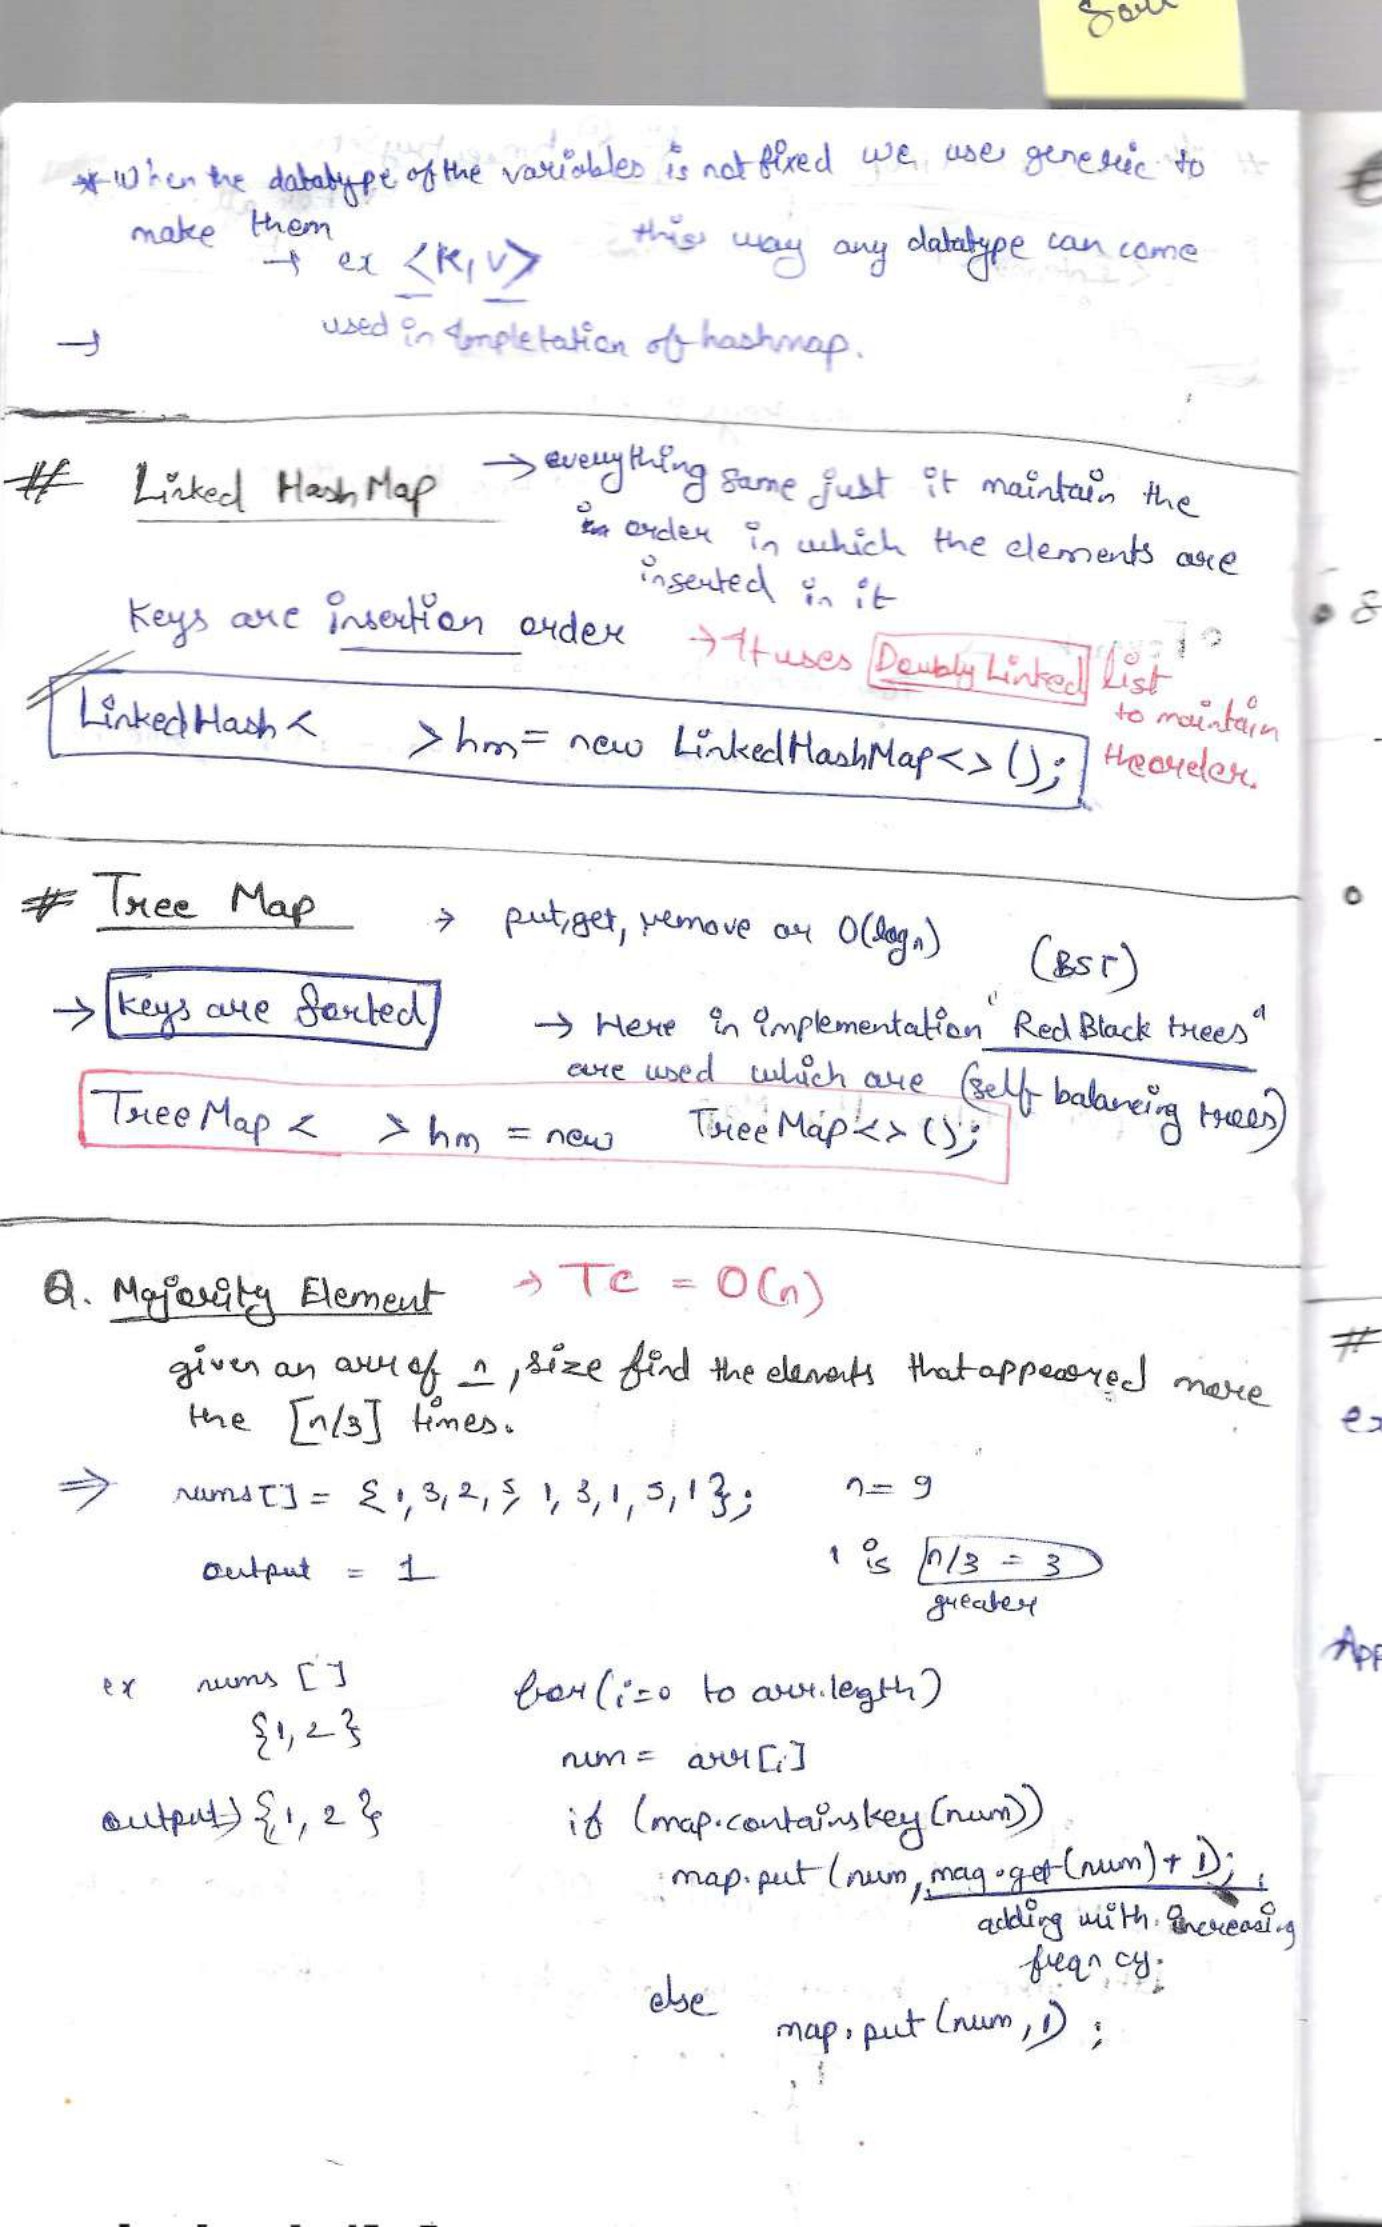 * When the datatype of the variables is not fixed we use generic to
make them
→ ex <K, V> this way any datatype can come
→ used in Impletation of hashmap.
# Linked HashMap → everything same just it maintain the
in order in which the elements are
inserted in it
Keys are insertion order → It uses Doubly Linked list
to maintain
the order.
LinkedHash< > hm = new LinkedHashMap<>();
# Tree Map → put, get, remove or O(logn)
(BST)
→ Keys are Sorted → Here in implementation "Red Black trees"
are used which are (self balancing trees)
TreeMap < > hm = new TreeMap<>();
Q. Majority Element → TC = O(n)
given an arr of n, size find the elements that appeared more
the [n/3] times.
⇒ nums[] = {1, 3, 2, 5, 1, 3, 1, 5, 1}; n = 9
output = 1 1 is n/3 = 3
greater
ex nums [] for (i=0 to arr.length)
{1, 2} num = arr[i]
output) {1, 2} if (map.containskey(num))
map.put (num, mag.get(num) + 1);
adding with increasing
freqncy.
else
map.put (num, 1) ;
#
ex
App